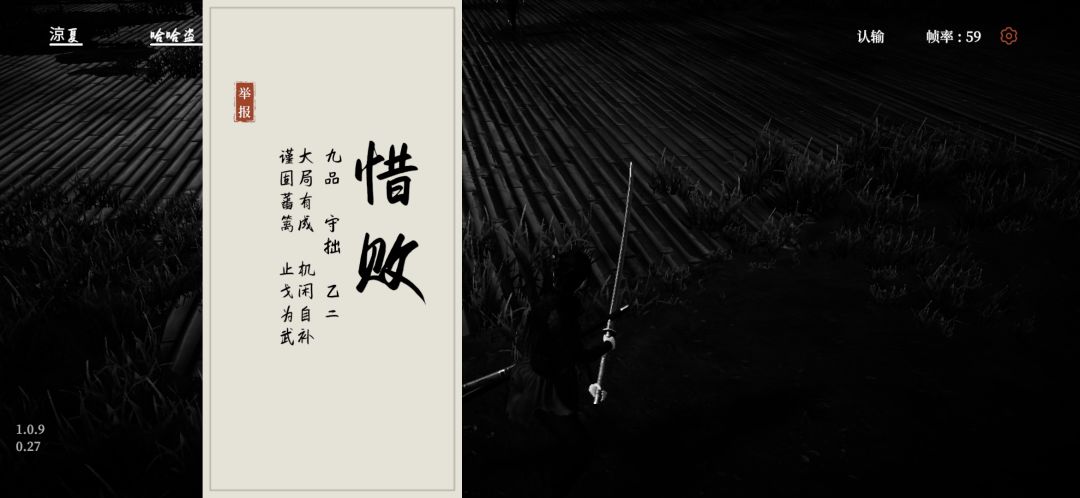 涼夏
哈哈盗
认输
帧率 : 59
惜败
九品 守拙 乙二
大局有成 机闲自补
谨固蕃篱 止戈为武
举报
1.0.9
0.27